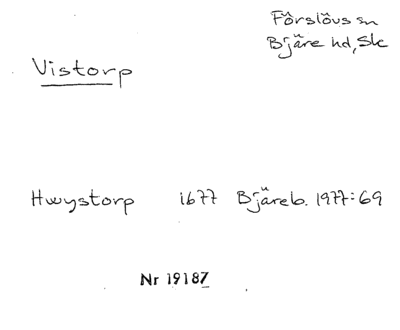 Förslövs sn
Bjäre hd, Sk
Vistorp
Hwystorp 1677 Bjäreb. 1977:69
Nr 19187